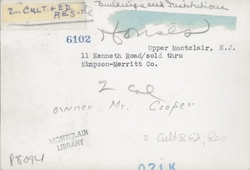 2 - CULT. & ED. Buildings and Institutions
RES.
6102 Homes
Upper Montclair, N.J.
11 Kenneth Road/sold thru
Simpson-Merritt Co.
2 Col
owner Mr. Cooper
MONTCLAIR
LIBRARY
2 Cult & Ed, Res
P8094